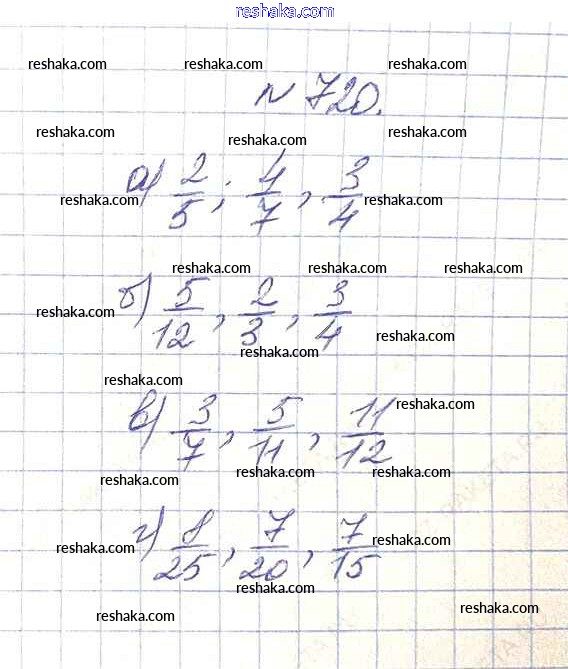 reshaka.com
reshaka.com reshaka.com reshaka.com
N 720.
reshaka.com reshaka.com reshaka.com
а) 2/5; 4/7, 3/4
reshaka.com reshaka.com reshaka.com
reshaka.com reshaka.com reshaka.com
б) 5/12, 2/3, 3/4
reshaka.com reshaka.com
reshaka.com
reshaka.com reshaka.com
в) 3/7, 5/11, 11/12
reshaka.com reshaka.com reshaka.com
г) 8/25, 7/20, 7/15
reshaka.com reshaka.com
reshaka.com
reshaka.com